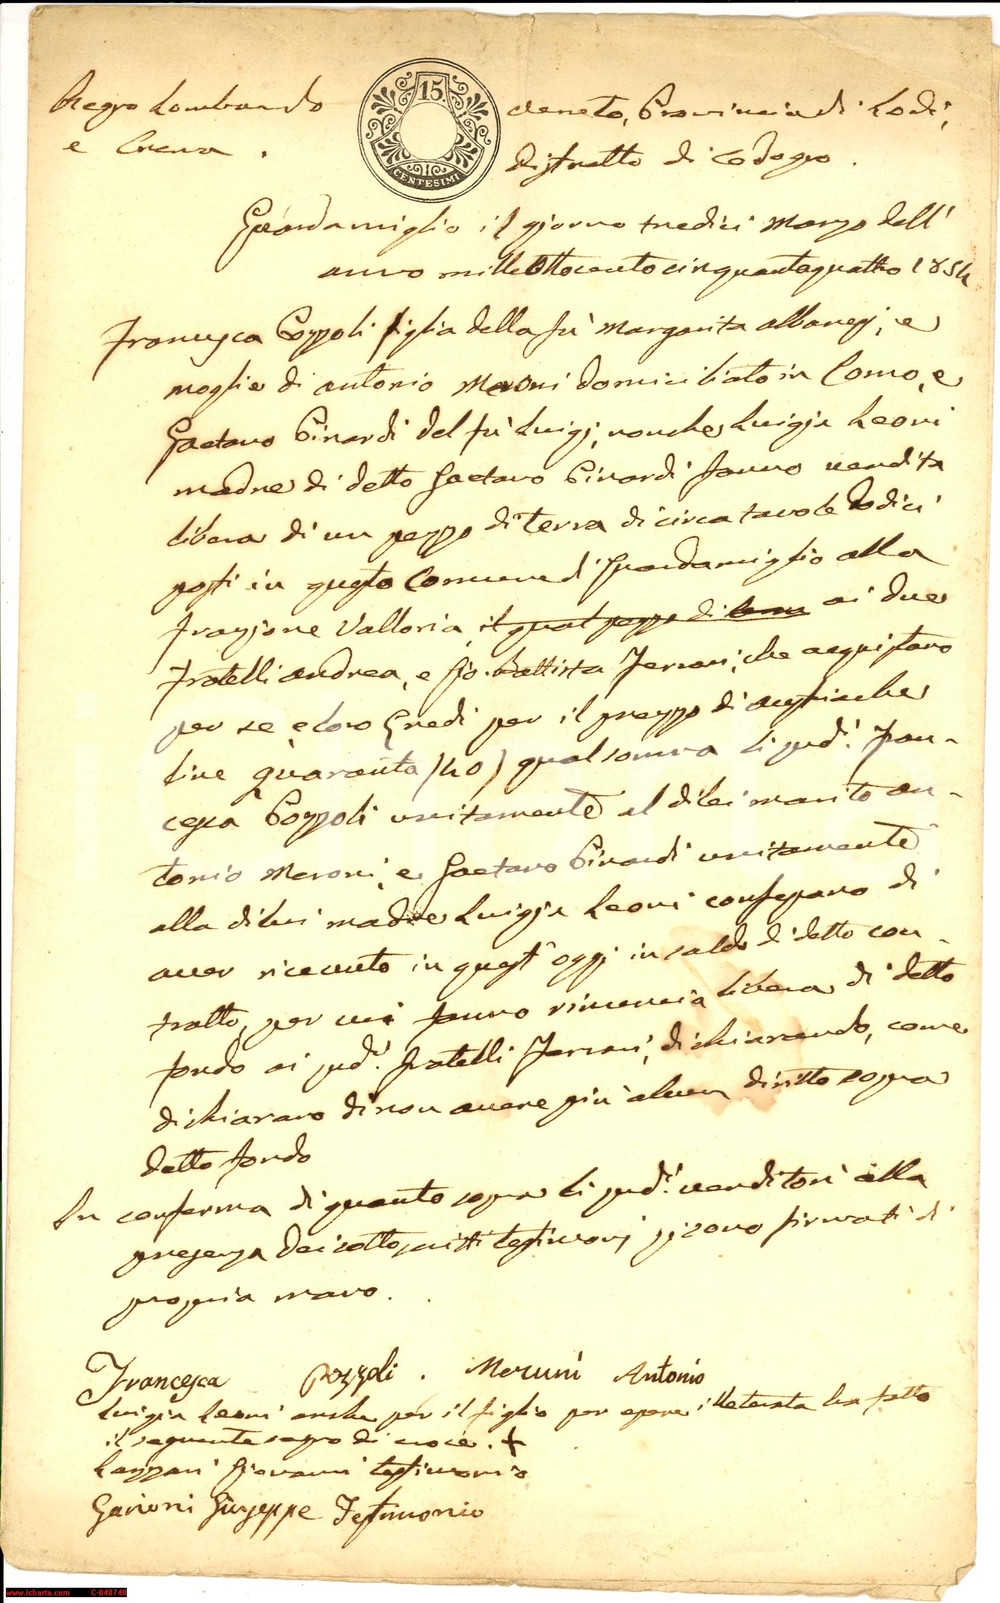 Regno Lombardo Veneto, Provincia di Lodi,
e Crema. Distretto di Codogno.
15
CENTESIMI
Guardamiglio il giorno tredici Marzo dell'
anno mille Ottocento cinquantaquattro 1854
Francesca Pozzoli figlia della fù Margarita Albanesi, e
moglie di Antonio Meroni domiciliato in Como, e
Gaetano Pinardi del fù Luigi, nonche Luigia Leoni
madre di detto Gaetano Pinardi fanno vendita
libera di un pezzo di terra di circa tavole Dodici
posti in questo Comune di Guardamiglio alla
frazione Valloria, il qual pezzo di terra ai due
Fratelli Andrea, e Gio. Battista Ferrari, che acquistano
per se e loro Eredi per il prezzo di austriache
lire quaranta (40) qual somma li sud.i Fran-
cesca Pozzoli unitamente al di lei marito An-
tonio Meroni, e Gaetano Pinardi unitamente
alla di lui madre Luigia Leoni confessano di
aver ricevuto in quest'oggi in saldo di detto con-
tratto, per cui fanno rinuncia libera di detto
fondo ai sud.i fratelli Ferrari, dichiarando, come
dichiarano di non avere più alcun diritto sopra
detto fondo
In conferma di quanto sopra li sud.i venditori alla
presenza dei sottoscritti testimonj si sono firmati di
propria mano.
Francesca Pozzoli. Meruni Antonio
Luigia Leoni anche per il figlio per essere illetterata ha fatto
il seguente segno di croce. +
Lazzari Giovanni testimonio
Garioni Giuseppe Testimonio
www.icharta.com C-040740